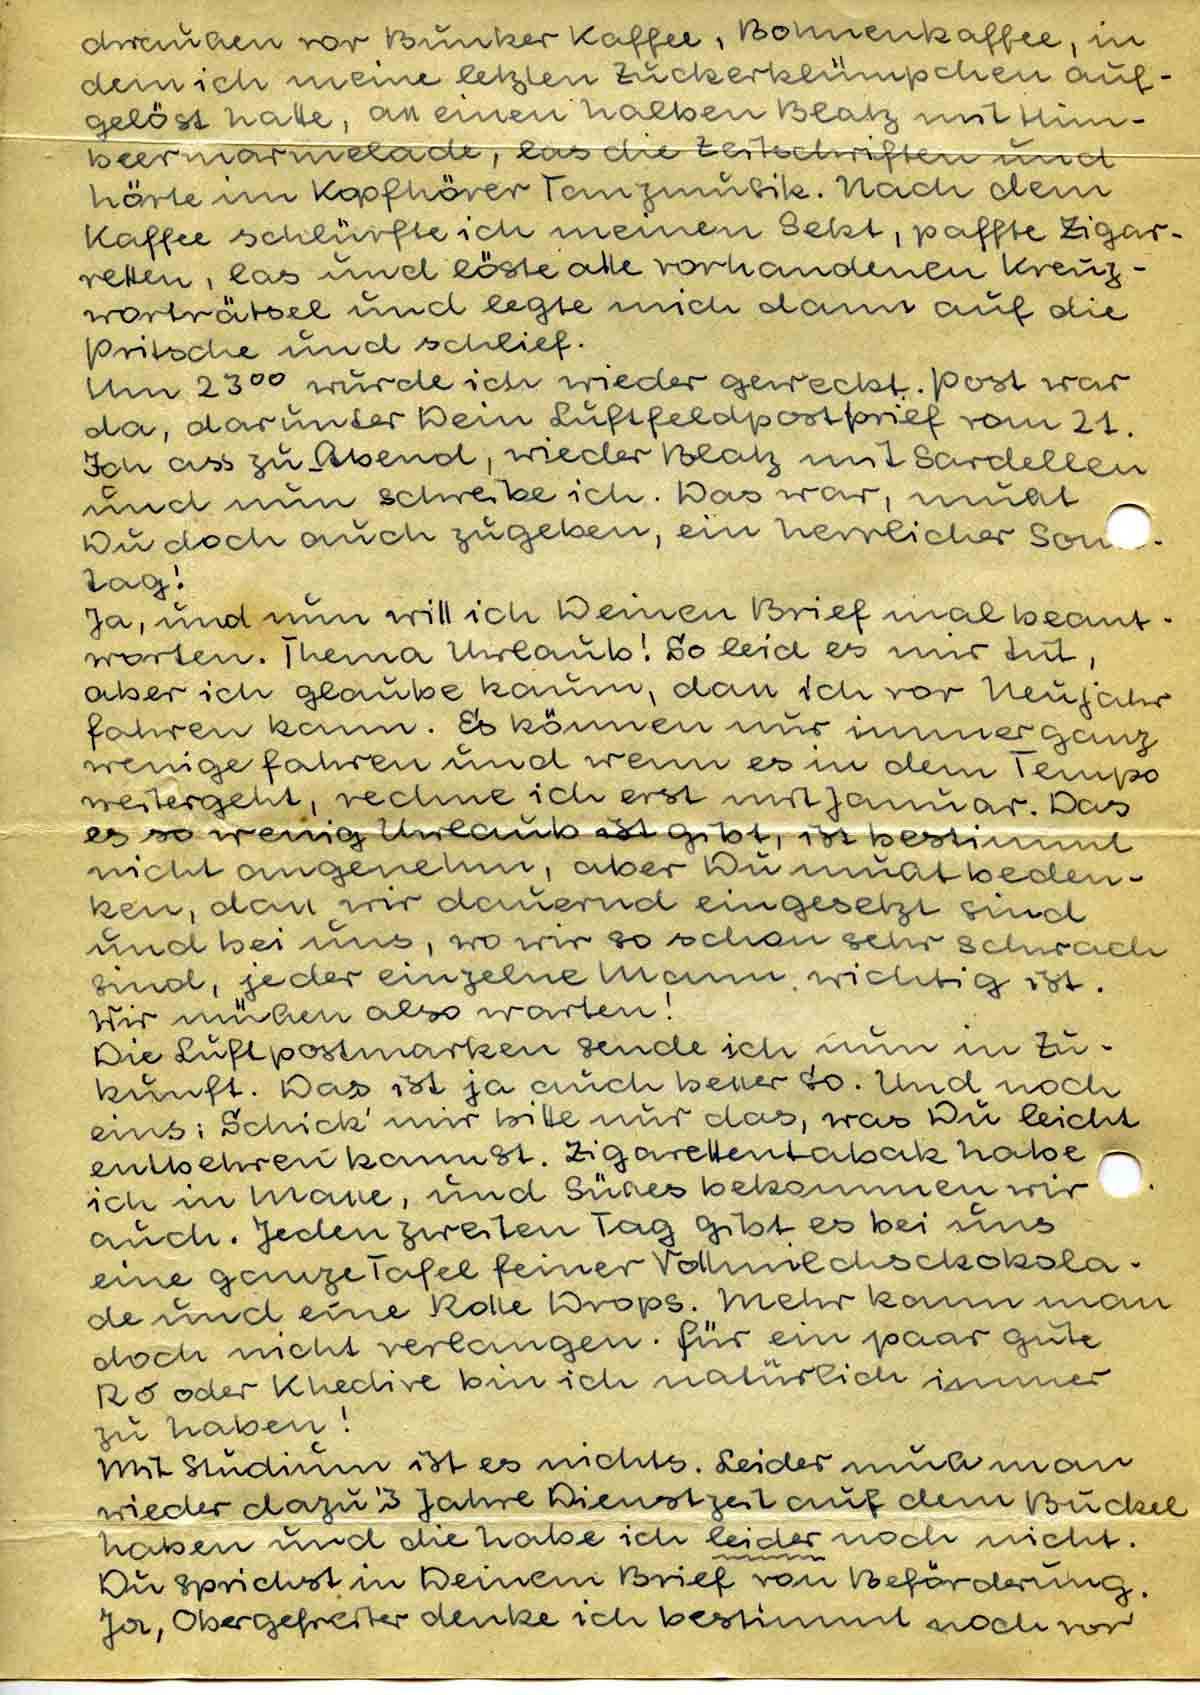 draußen vor Bunker Kaffee, Bohnenkaffee, in
dem ich meine letzten Zuckerklümpchen auf-
gelöst hatte, aß einen halben Blatz mit Him-
beermarmelade, las die Zeitschriften und
hörte im Kopfhörer Tanzmusik. Nach dem
Kaffee schlürfte ich meinen Sekt, paffte Zigar-
retten, las und löste alle vorhandenen Kreuz-
worträtsel und legte mich dann auf die
Pritsche und schlief.
Um 23⁰⁰ wurde ich wieder geweckt. Post war
da, darunter Dein Luftfeldpostbrief vom 21.
Ich ass zu Abend, wieder Blatz mit Sardellen
und nun schreibe ich. Das war, mußt
Du doch auch zugeben, ein herrlicher Sonn-
tag!
Ja, und nun will ich Deinen Brief mal beant-
worten. Thema Urlaub! So leid es mir tut,
aber ich glaube kaum, daß ich vor Neujahr
fahren kann. Es können nur immer ganz
wenige fahren und wenn es in dem Tempo
weitergeht, rechne ich erst mit Januar. Das
es so wenig Urlaub ist gibt, ist bestimmt
nicht angenehm, aber Du mußt beden-
ken, daß wir dauernd eingesetzt sind
und bei uns, wo wir so schon sehr schwach
sind, jeder einzelne Mann wichtig ist.
Wir müßen also warten!
Die Luftpostmarken sende ich nun in Zu-
kunft. Das ist ja auch besser so. Und noch
eins: Schick' mir bitte nur das, was Du leicht
entbehren kannst. Zigarettentabak habe
ich in Masse, und Süßes bekommen wir
auch. Jeden zweiten Tag gibt es bei uns
eine ganze Tafel feiner Vollmilchschokola-
de und eine Rolle Drops. Mehr kann man
doch nicht verlangen. Für ein paar gute
R6 oder Khedive bin ich natürlich immer
zu haben!
Mit Studium ist es nichts. Leider muß man
wieder dazu 3 Jahre Dienstzeit auf dem Buckel
haben und die habe ich leider noch nicht.
Du sprichst in Deinem Brief von Beförderung.
Ja, Obergefreiter denke ich bestimmt noch vor